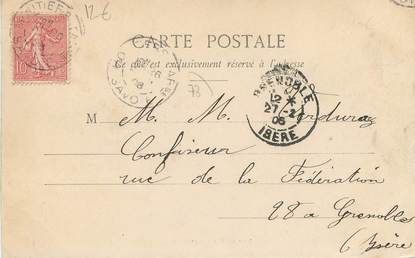 12€
CARTE POSTALE
Ce côté est exclusivement réservé à l'adresse
10
SAVOIE
GRENOBLE
12 *
27 -2
05
ISÈRE
73
M M. M.
Confiseur
rue de la Fédération
28 a Grenoble
(Isère